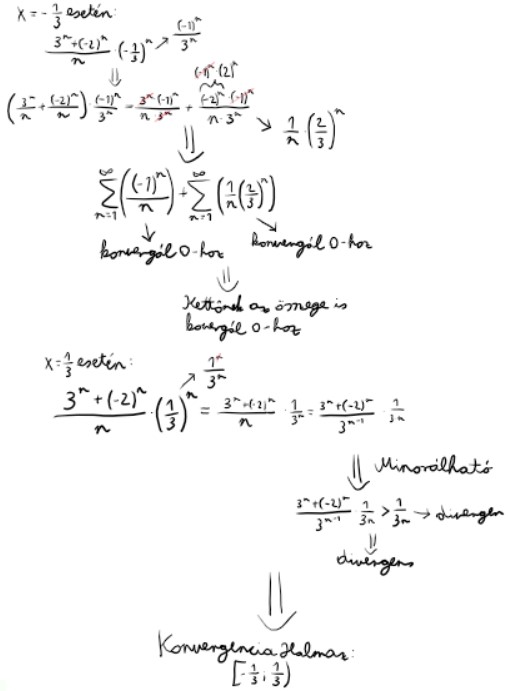 x=-1/3 esetén:
(3^n+(-2)^n)/n · (-1/3)^n → (-1)^n/3^n
⇓
(3^n/n + (-2)^n/n) · (-1)^n/3^n = 3^n·(-1)^n/(n·3^n) + (-2)^n·(-1)^n/(n·3^n)
(-1)^n·(2)^n
→ 1/n · (2/3)^n
⇓
∑_{n=1}^∞ ((-1)^n/n) + ∑_{n=1}^∞ (1/n (2/3)^n)
konvergál 0-hoz konvergál 0-hoz
⇓
Kettőnek az összege is
kovergál 0-hoz
x=1/3 esetén:
(3^n+(-2)^n)/n · (1/3)^n = (3^n+(-2)^n)/n · 1/3^n = (3^n+(-2)^n)/3^(n-1) · 1/3n
→ 1^n/3^n
⇓ Minorálható
(3^n+(-2)^n)/3^(n-1) · 1/3n > 1/3n → divergen
⇓
divergens
⇓
Konvergencia Halmaz:
[-1/3; 1/3)